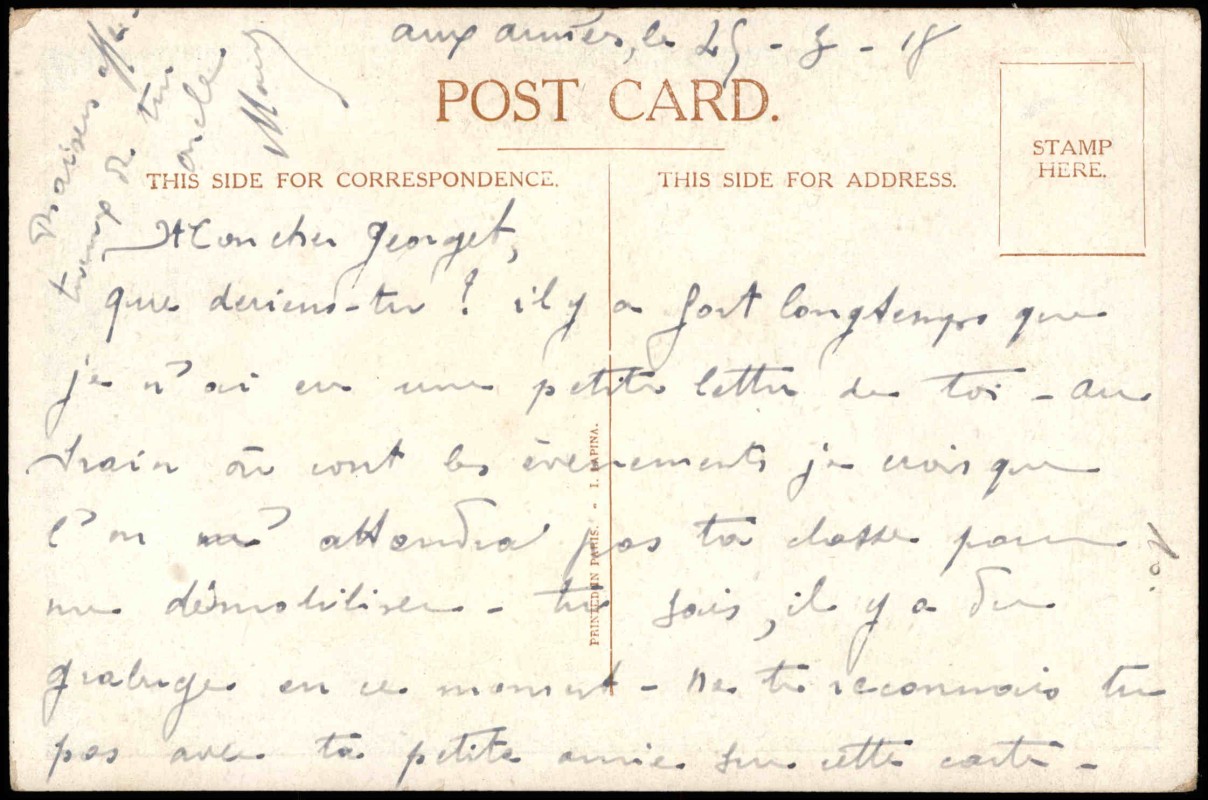 aux armées, le 25-3-18
POST CARD.
STAMP
HERE.
THIS SIDE FOR CORRESPONDENCE.
THIS SIDE FOR ADDRESS.
Mon cher Georget,
que deviens-tu ? il y a fort longtemps que
je n'ai eu une petite lettre de toi - au
train où vont les évènements je crois que
l'on n' attendra pas ta classe pour
me démobiliser - tu sais, il y a du
grabuge en ce moment - Ne te reconnais tu
pas avec ta petite amie sur cette carte -
Baisers
de ton
oncle
PRINTED IN PARIS. - I. LAPINA.